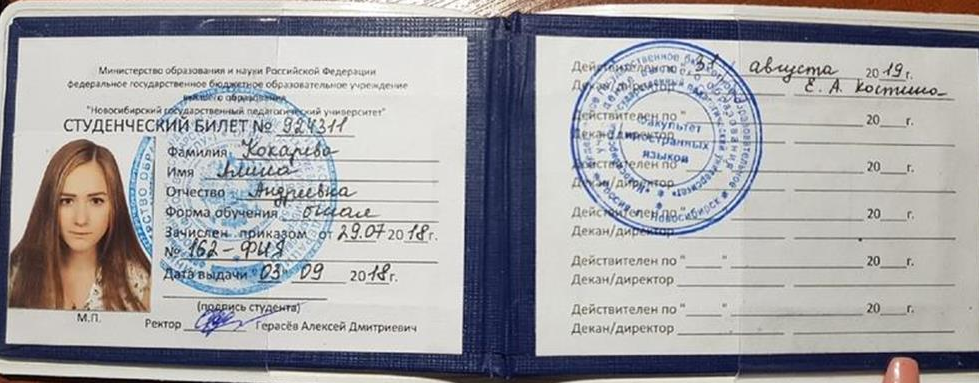 Министерство образования и науки Российской Федерации
федеральное государственное бюджетное образовательное учреждение
высшего образования
"Новосибирский государственный педагогический университет"
СТУДЕНЧЕСКИЙ БИЛЕТ № 924311
Фамилия Кокарева
Имя Алина
Отчество Андреевна
Форма обучения очная
Зачислен приказом от 29.07 2018г.
№ 162-ФИЯ
Дата выдачи 03 09 2018г.
(подпись студента)
М.П.
Ректор Герасёв Алексей Дмитриевич
Действителен по 31 августа 2019г.
Декан/директор Е. А. Костина
Действителен по " 20 г.
Декан/директор
Факультет
иностранных
языков
Действителен по 20 г.
Декан/директор
Действителен по " 20 г.
Декан/директор
Действителен по " " 20 г.
Декан/директор
Действителен по " " 20 г.
Декан/директор